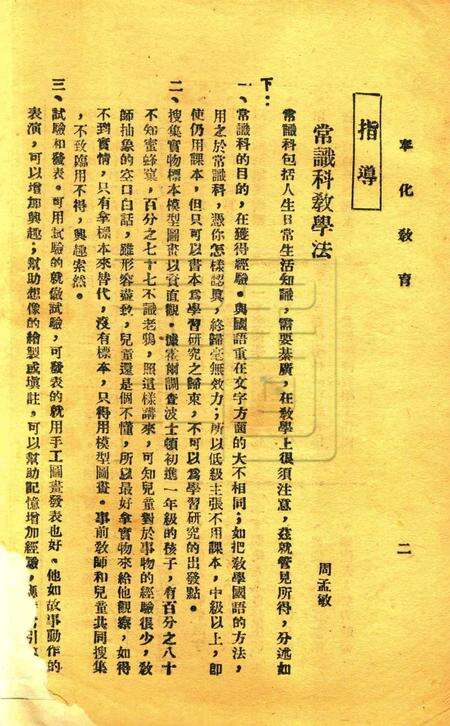 奉化教育
二
指導
常識科敎學法
周孟敏
常識科包括人生日常生活知識，需要綦廣，在敎學上很須注意，茲就管見所得，分述如
下：
一、常識科的目的，在獲得經驗。與國語重在文字方面的大不相同；如把敎學國語的方法，
用之於常識科，憑你怎樣認眞，終歸毫無效力；所以低級主張不用課本，中級以上，卽
使仍用課本，但只可以書本爲學習研究之歸束，不可以爲學習研究的出發點。
二、搜集實物標本模型圖畫以資直觀。據霍爾調查波士頓初進一年級的孩子，有百分之八十
不知蜜蜂窠，百分之七十七不識老鴉，照這樣講來，可知兒童對於事物的經驗很少，敎
師抽象的空口白話，雖形容盡致，兒童還是個不懂，所以最好拿實物來給他觀察，如得
不到實情，只有拿標本來替代，沒有標本，只得用模型圖畫。事前敎師和兒童共同搜集
，不致臨用不得，興趣索然。
三、試驗和發表。可用試驗的就做試驗，可發表的就用手工圖畫發表也好。他如故事動作的
表演，可以增加興趣；幫助想像的繪製或塡註，可以幫助記憶增加經驗，